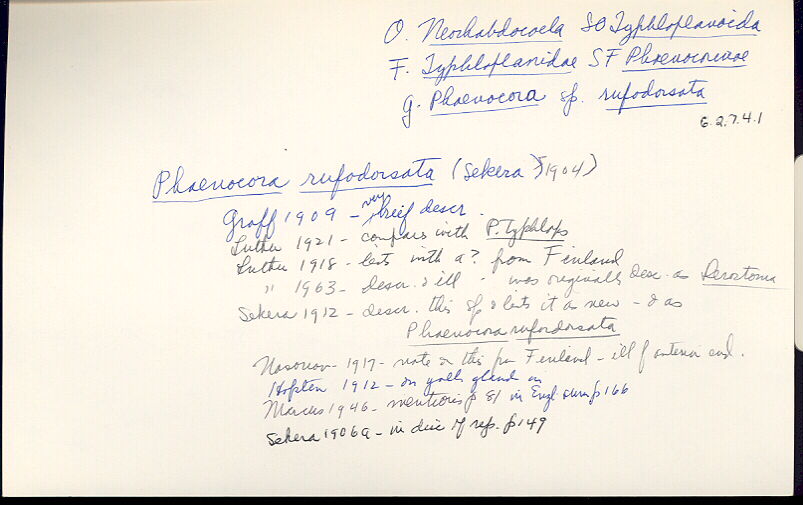 O. Neorhabdocoela SO Typhloplanoida
F. Typhloplanidae SF Phaenocorinae
g. Phaenocora sp. rufodorsata
6.2.7.4.1
Phaenocora rufodorsata (Sekera 1904)
Graff 1909 - very brief descr.
Luther 1921 - compares with P. typhlops
Luther 1918 - lists with a ? from Finland
" 1963 - descr. & ill - was originally desc. as Derostoma
Sekera 1912 - descr. this sp & lists it as new - & as
Phaenocora rufordorsata
Nasonov - 1917 - note on this fr Finland - ill of anterior end.
Hofsten 1912 - on yolk gland
Marcus 1946 - mentions p 81 in Engl. sum p 166
Sekera 1906a - in disc of rep. p 149